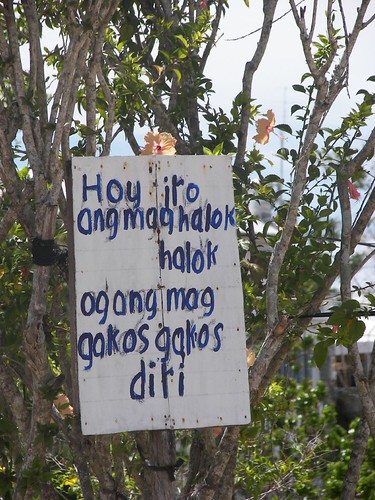 Hoy iro
ang mag halok
halok
og ang mag
gakos gakos
diri